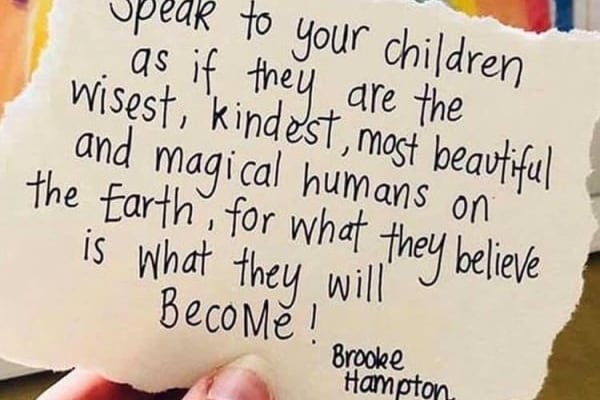 Speak to your children
as if they are the
wisest, kindest, most beautiful
and magical humans on
the Earth, for what they believe
is what they will
BecoMe!
Brooke
Hampton